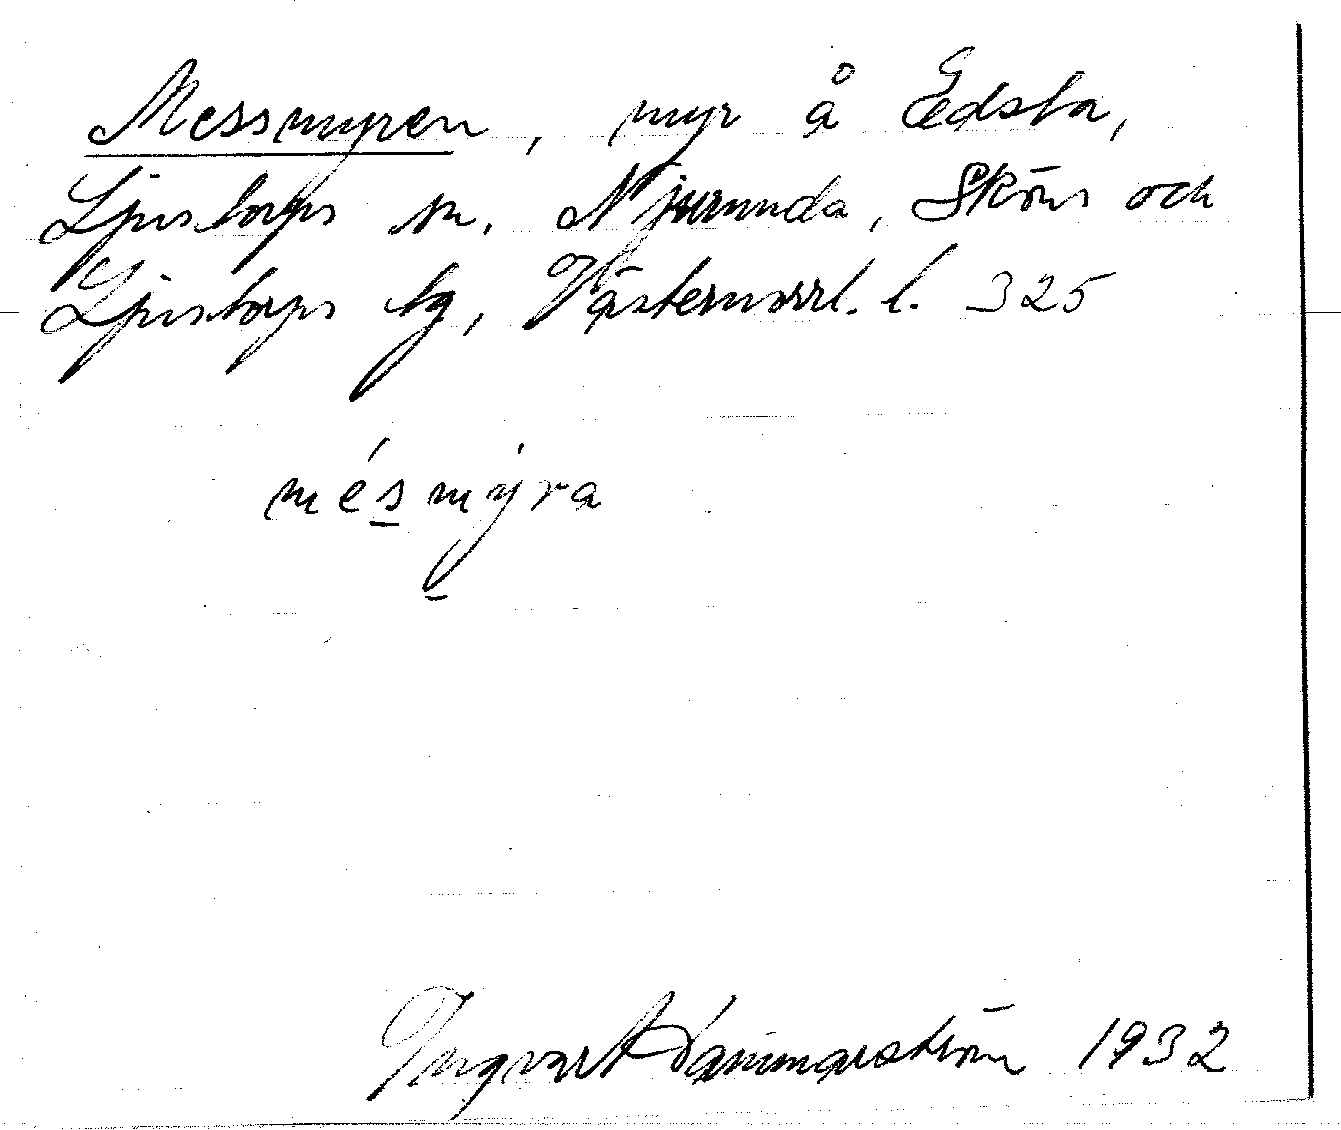 Messmyren, myr å Edsta,
Ljustorps sn, Njurunda, Sköns och
Ljustorps tg, Västernorrl. l. 325
mésmýra
Ingvar Hammarström 1932